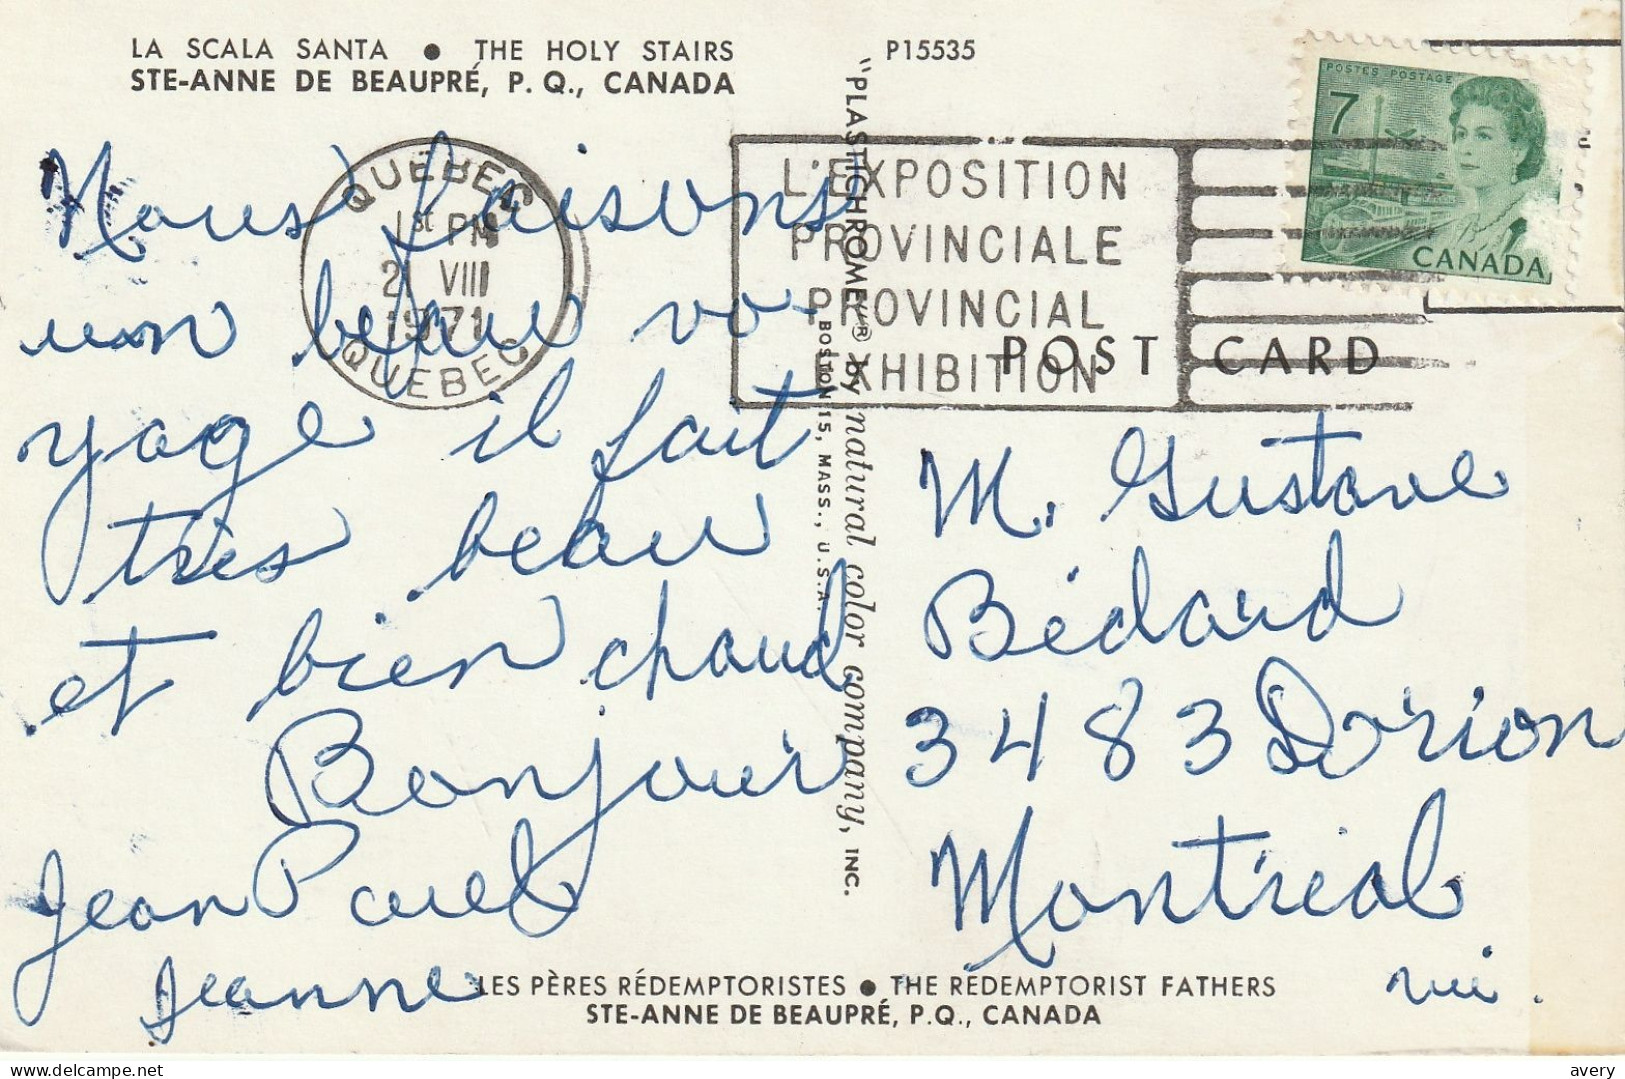 LA SCALA SANTA ● THE HOLY STAIRS
STE-ANNE DE BEAUPRÉ, P. Q., CANADA
P15535
QUÉBEC
1ST PM
21 VIII
1971
QUÉBEC
L'EXPOSITION
PROVINCIALE
PROVINCIAL
EXHIBITION
POSTES POSTAGE
7
CANADA
POST CARD
Nous faisons
un beau vo-
yage il fait
très beau
et bien chaud
Bonjour
Jean Paul
Jeanne
"PLASTICHROME"® by natural color company, INC.
BOSTON 15, MASS., U.S.A.
M. Gustave
Bédard
3483 Dorion
Montréal
LES PÈRES RÉDEMPTORISTES ● THE REDEMPTORIST FATHERS
STE-ANNE DE BEAUPRÉ, P.Q., CANADA
delcampe.net
avery